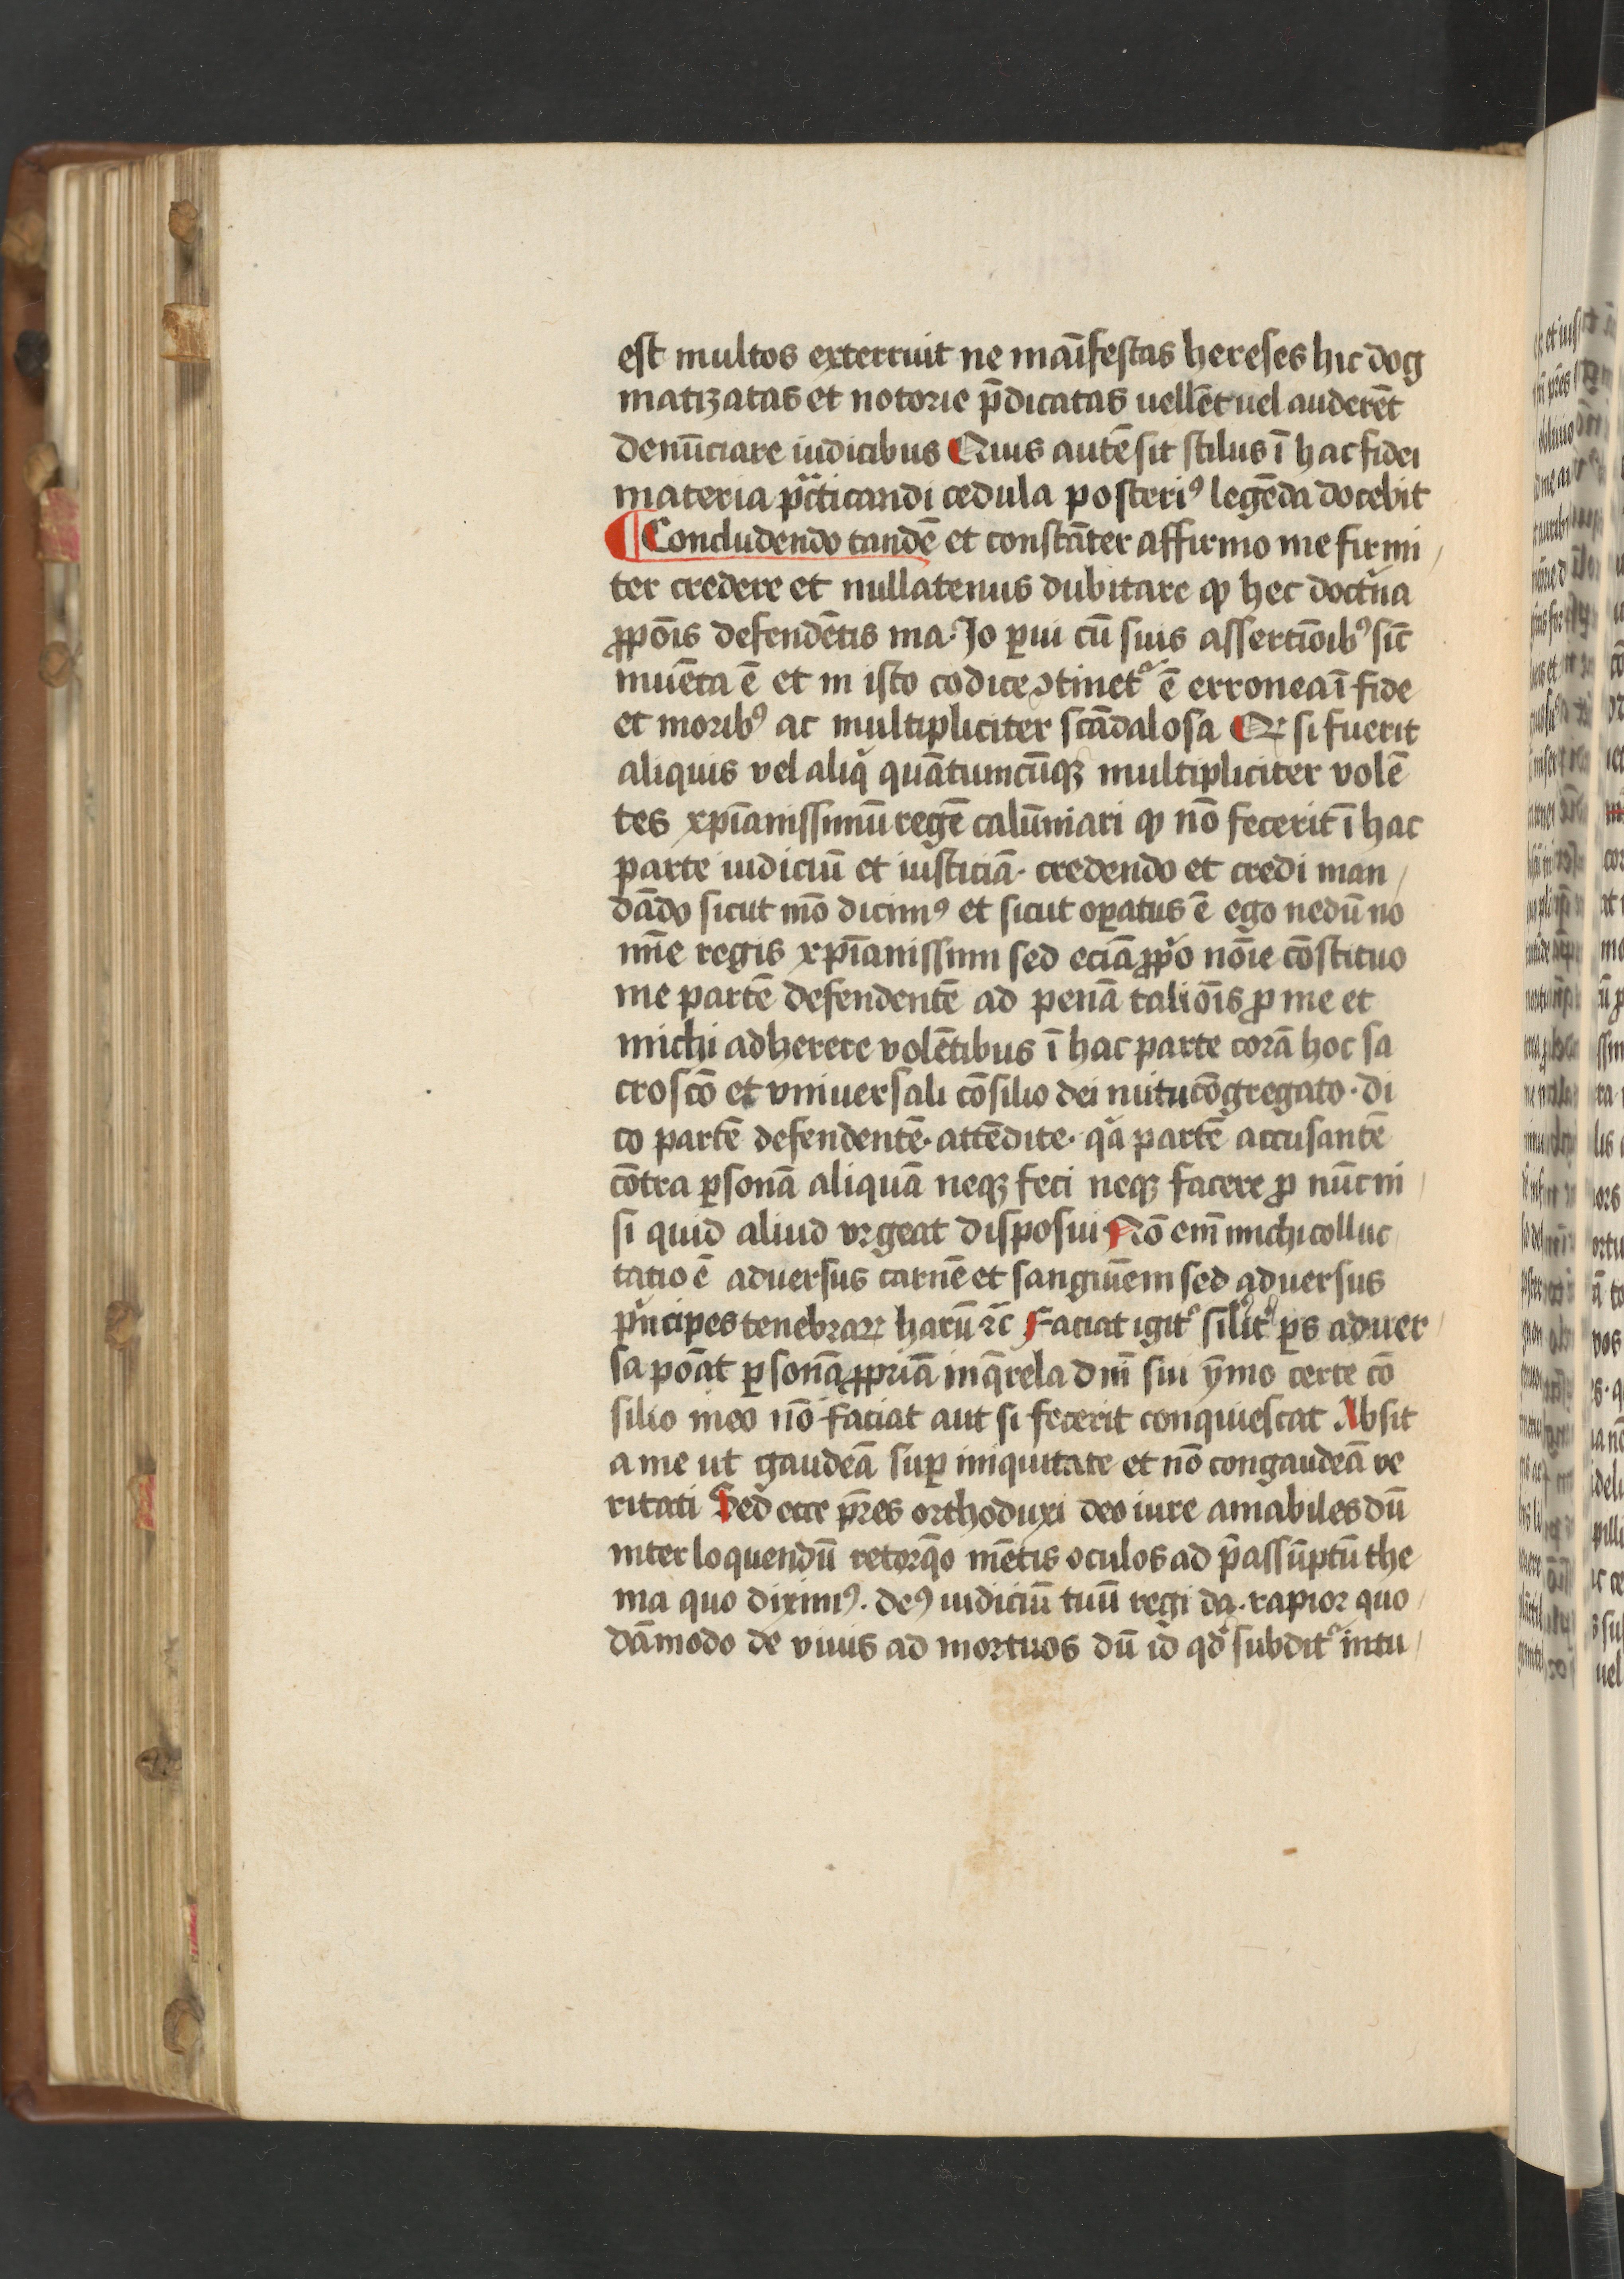 est multos exterruit ne maīfestas hereses hic dog
matizatas et notorie p̄dicatas uellēt uel auderēt
denūciare iudicibus Quis autē sit stilus ī hac fidei
materia pͣcticandi cedula posteriꝰ legēda docebit
¶ Concludendo tandē et constāter affirmo me firmi
ter credere et nullatenus dubitare ꝙ hec doctͥna
ꝓpōis defendētis ma· Jo ꝑui cū suis assertīoibꝰ sic̄
inuēta ē et in isto codice ꝯtinetᷣ ē erronea ī fide
et moribꝰ ac multipliciter scādalosa Qꝛ si fuerit
aliquis vel aliqͥ quātumcūqꝫ multipliciter volē
tes xpīanissimū regē calūmari ꝙ nō fecerit ī hac
parte iudiciū et iusticiā· credendo et credi man
dādo sicut mō dicimꝰ et sicut oꝑatus ē ego nedū no
mīe regis xpīanissimi sed eciā ꝓpͥo nōie cōstituo
me partē defendentē ad penā taliōis ꝓ me et
michi adherere volētibus ī hac parte corā hoc sa
croscō et vniuersali cōsilio dei nutu cōgregato· di
co partē defendentē· attēdite· qͣa partē accusantē
cōtra ꝑsonā aliquā neqꝫ feci neqꝫ facere ꝓ nūc ni
si quid aliud vrgeat disposui Nō em̄ michi colluc
tatio ē aduersus carnē et sanguīem sed aduersus
pͥncipes tenebraꝝ harū ⁊c̄ Faciat igitᷣ silͥitᷣ ꝑs aduer
sa pōat ꝑsonā ꝓpriā in q̄rela dnī sui ȳmo certe cō
silio meo nō faciat aut si fecerit conquiescat Absit
a me ut gaudeā suꝑ iniquitate et nō congaudeā ve
ritati Sed ecce pr̄es orthoduxi deo iure amabiles dū
inter loquendū retorq̄o mētis oculos ad p̄assūptū the
ma quo diximꝰ· deꝰ iudiciū tuū regi da· rapior quo
dāmodo de viuis ad mortuos dū id qd̄ subditᷣ intu